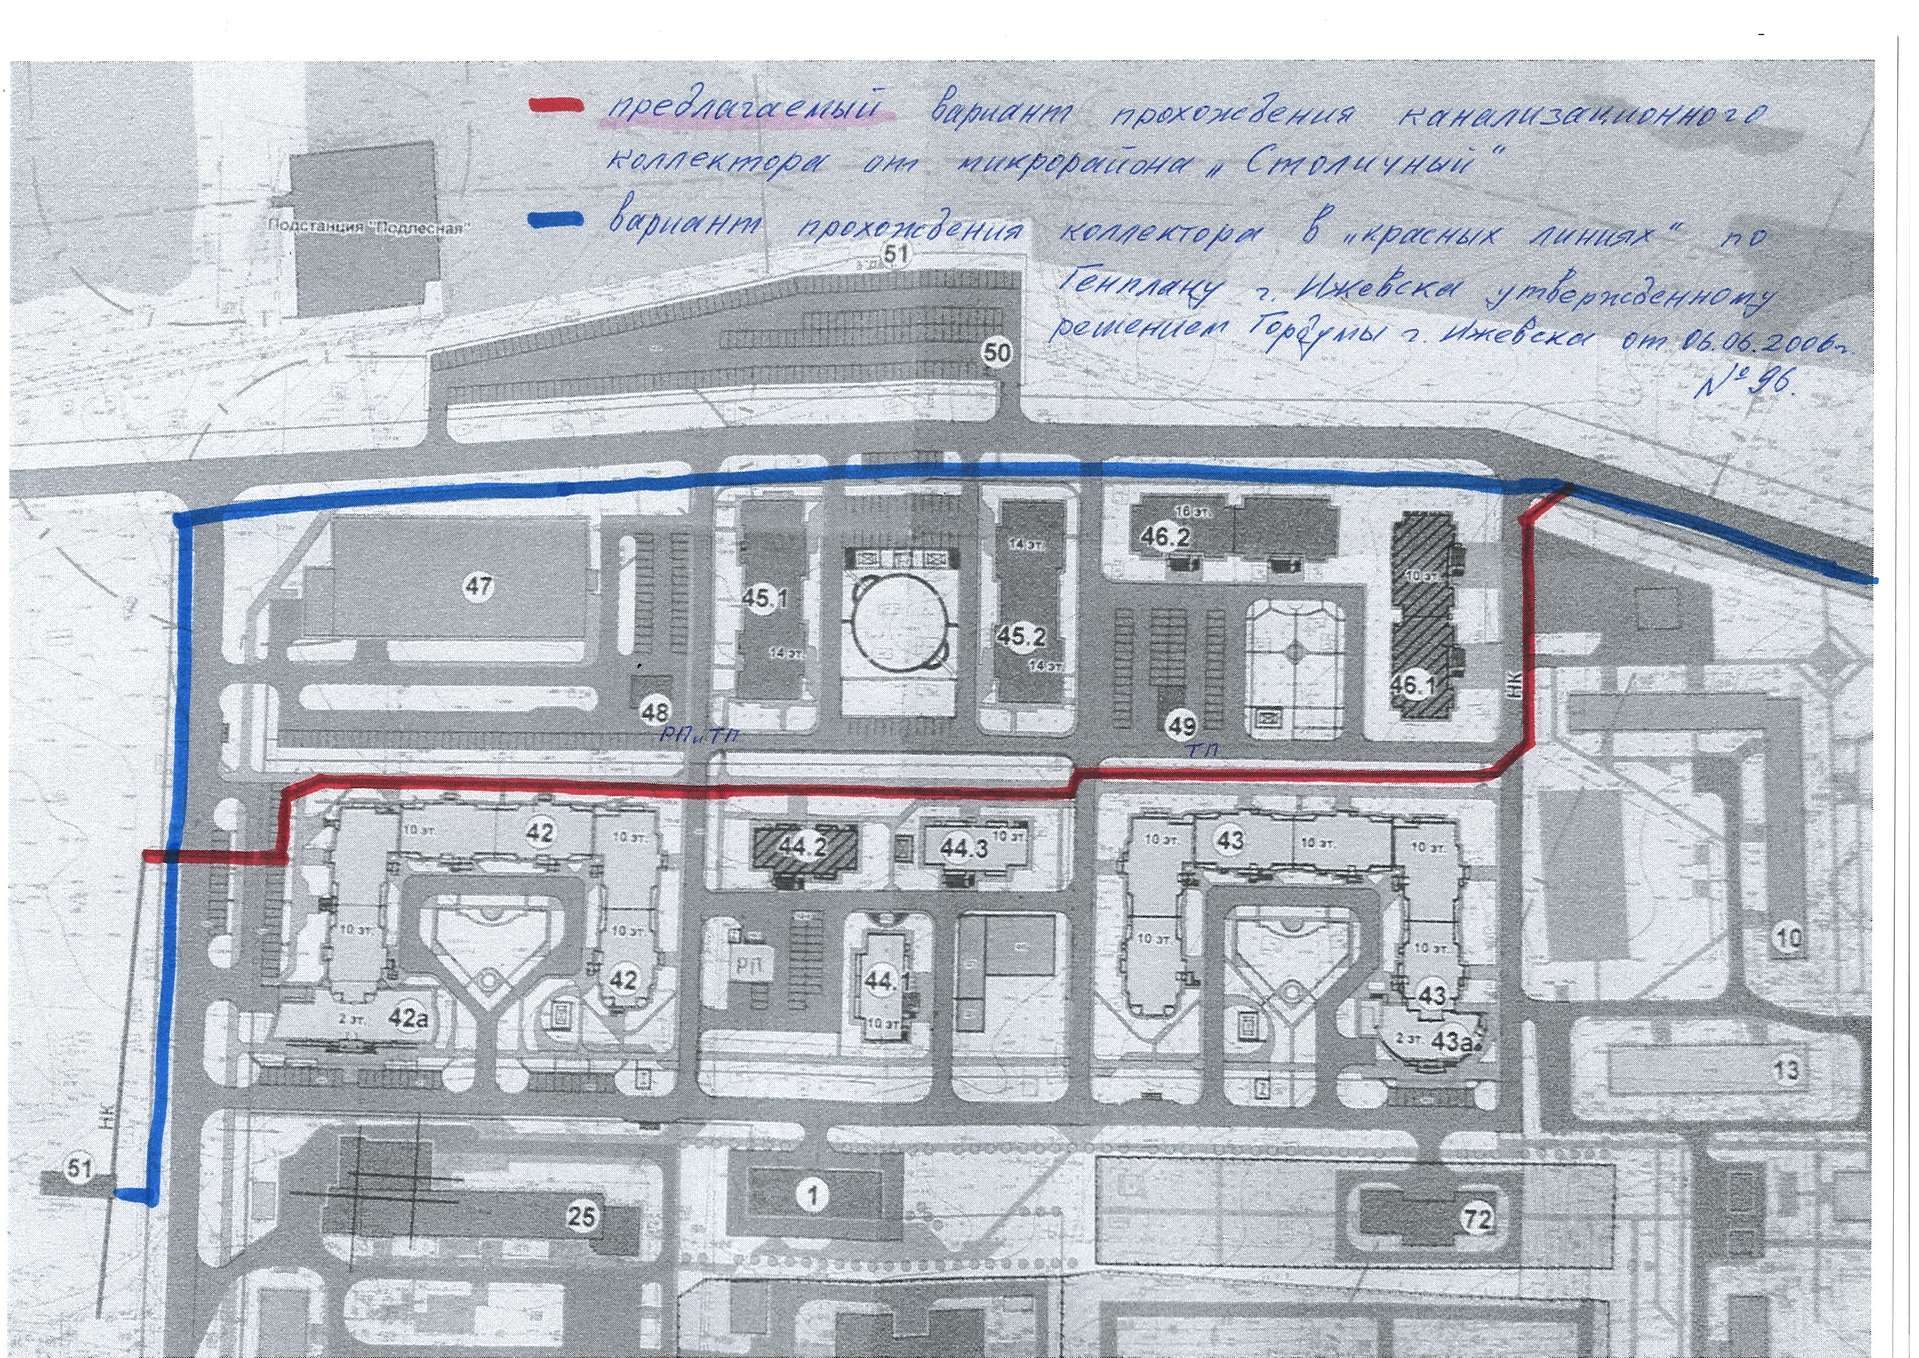 предлагаемый вариант прохождения канализационного
коллектора от микрорайона „Столичный"
вариант прохождения коллектора в „красных линиях" по
Генплану г. Ижевска утвержденному
решением Гордумы г. Ижевска от 06.06.2006г.
№ 96.
Подстанция "Подлесная"
51
50
47
45.1
14 эт.
14 эт.
45.2
14 эт.
16 эт.
46.2
10 эт.
46.1
48
РП и ТП
49
ТП
НК
10 эт.
42
10 эт.
10 эт.
10 эт.
42
42а
2 эт.
44.2
44.3
10 эт
РП
44.1
10 эт.
10 эт.
43
10 эт.
10 эт.
10 эт.
10 эт.
43
2 эт.
43а
10
13
НК
51
25
1
72